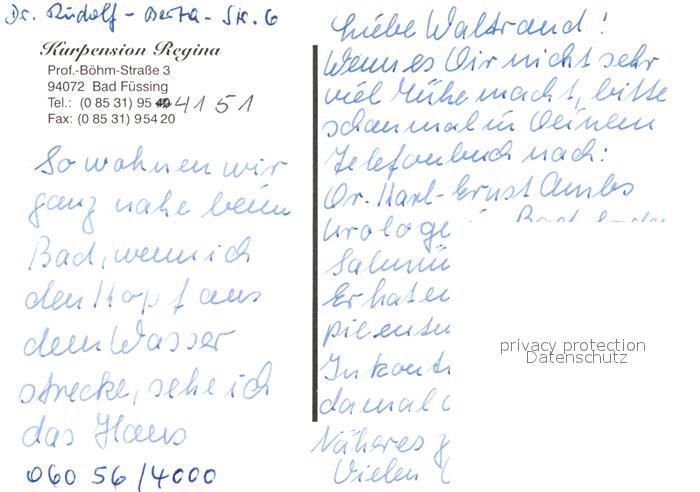 Dr. Rudolf-Berta-Str. 6
Kurpension Regina
Prof.-Böhm-Straße 3
94072 Bad Füssing
Tel.: (0 85 31) 95 4151
Fax: (0 85 31) 954 20
So wohnen wir
ganz nahe beim
Bad, wenn ich
den Kopf aus
dem Wasser
strecke, sehe ich
das Haus
060 56 / 4000
Liebe Waltraud!
Wenn es Dir nicht sehr
viel Mühe macht, bitte
schau mal in Deinem
Telefonbuch nach:
Dr. Karl-Ernst Ambs
Urologe Bad
Salmü
Er hat
In kont
damal
Näheres z
Vielen
privacy protection
Datenschutz